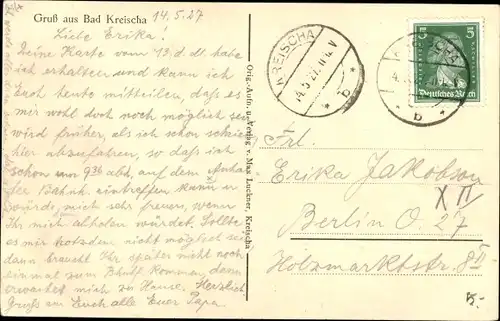 Gruß aus Bad Kreischa 14.5.27
Liebe Erika!
Deine Karte vom 13. d. M. habe
ich erhalten und kann ich
Euch heute mitteilen, daß es
mir wohl doch noch möglich sein
wird früher, als ich schon schrieb
hier abzufahren, so daß ich
schon um 9 36 abd. auf dem Anhal
ter Bhhnh. eintreffen kann u.
würde mich sehr freuen, wenn
Ihr mich abholen würdet. Sollte
es mir trotzdem nicht möglich sein
dann braucht Ihr später nicht noch
einmal zum Bhnhf kommen, denn
erwartet mich zu Hause. Herzlich
Gruß an Euch alle Euer Papa.
Orig.-Aufn. u. Verlag v. Max Luckner, Kreischa
KREISCHA
14.5.27. V
* b *
KREISCHA
* b *
5 5
Deutsches Reich
Frl.
Erika Jakobson
Berlin O 27
Holzmarktstr.